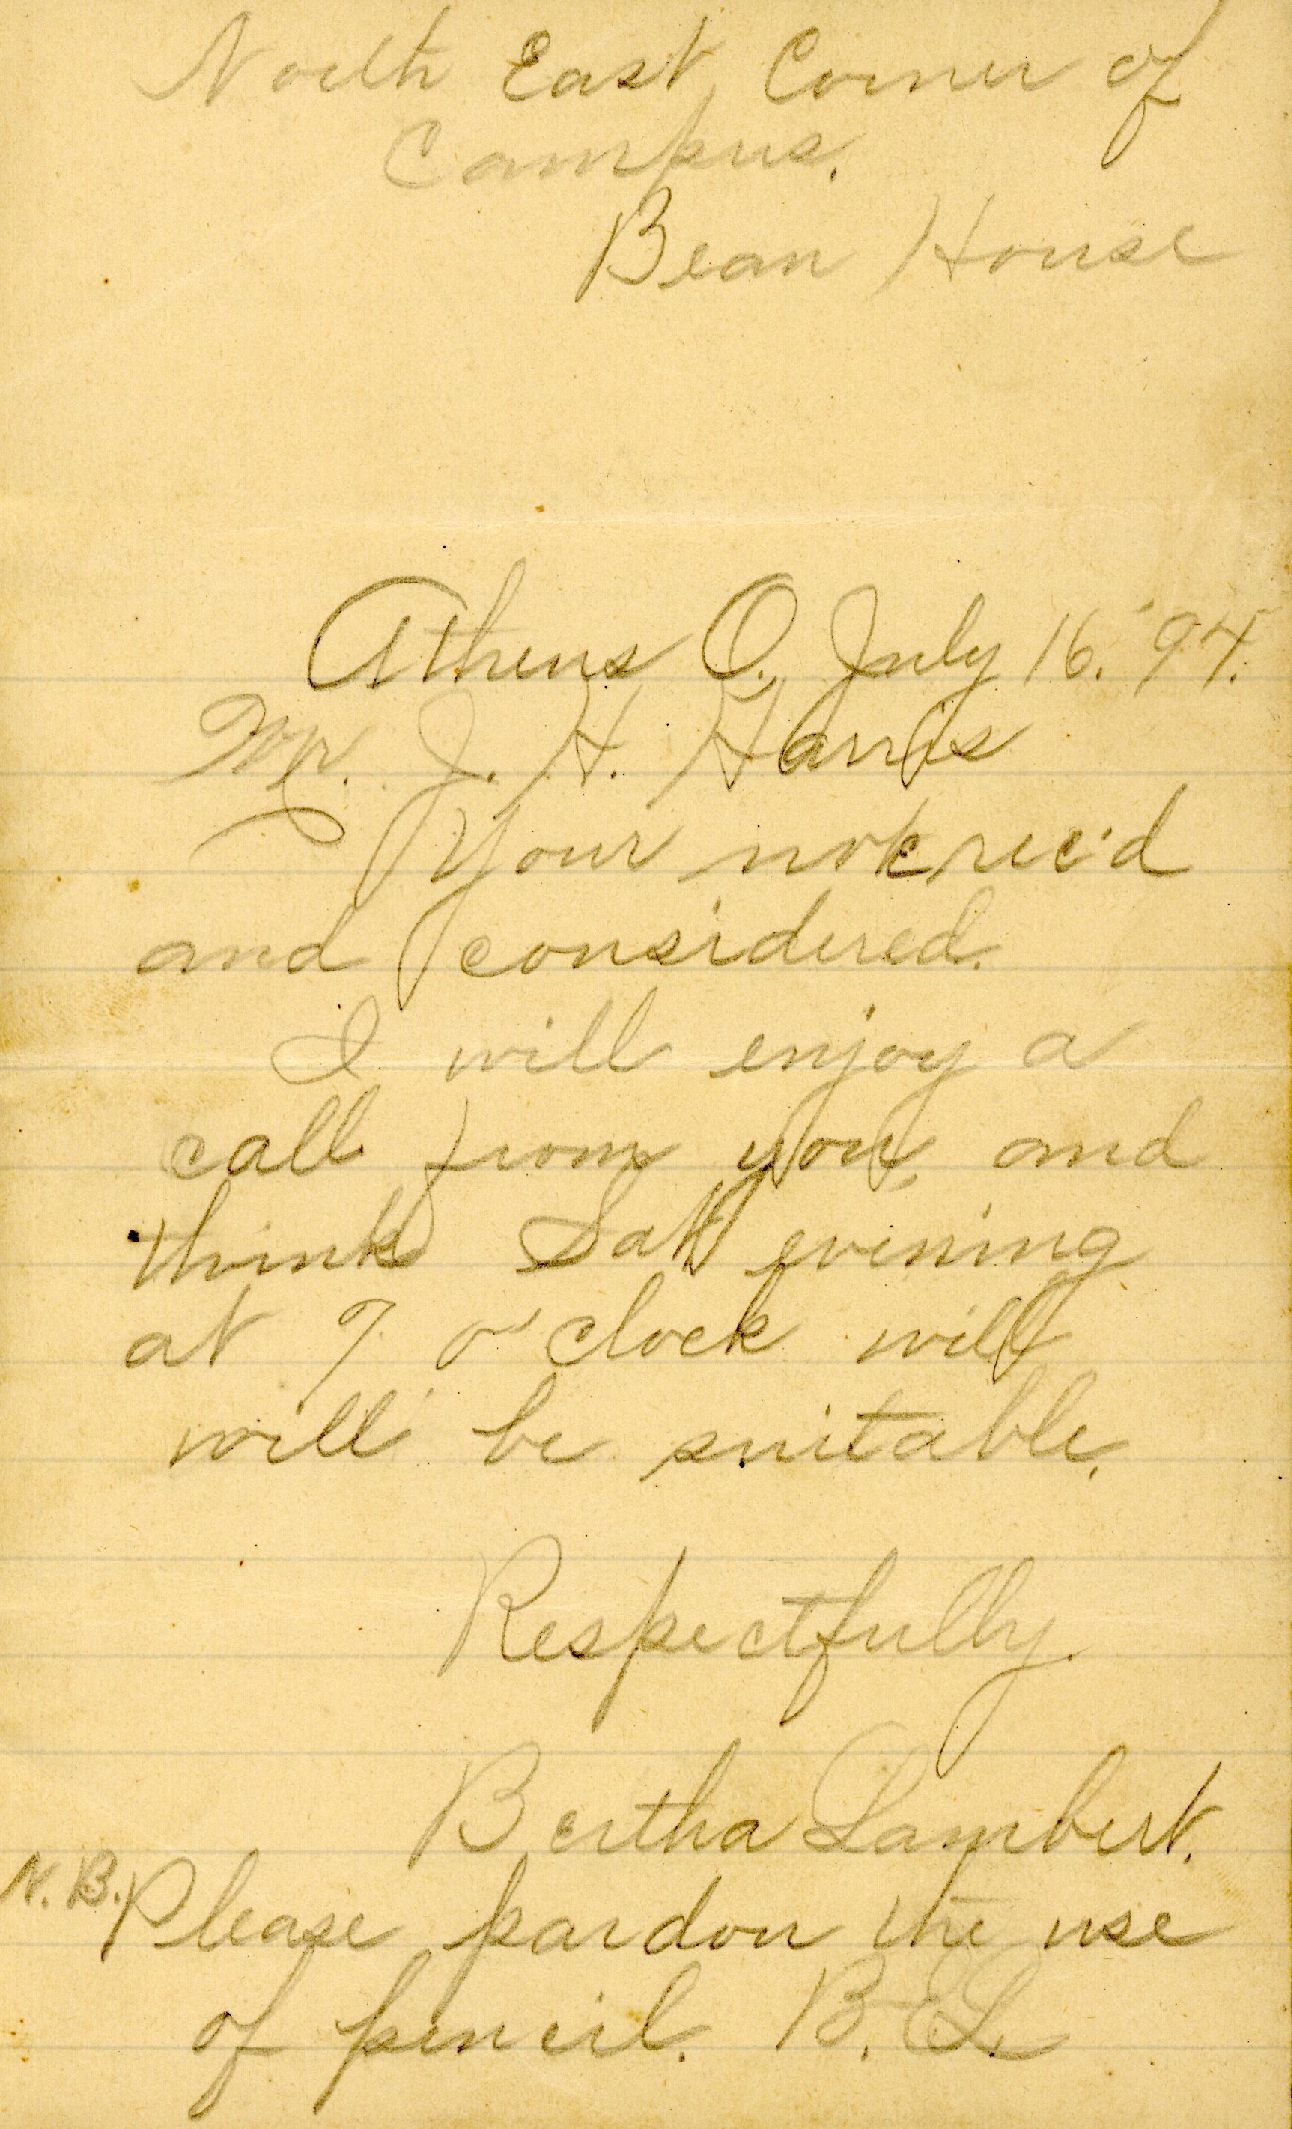 North East Corner of
Campus.
Bean House
Athens O. July 16. '94.
Mr. J. H. Harris
Your note rec'd
and considered.
I will enjoy a
call from you, and
think Sat evening
at 7. o'clock will
will be suitable.
Respectfully.
Bertha Lambert.
N.B. Please pardon the use
of pencil. B. E. L.